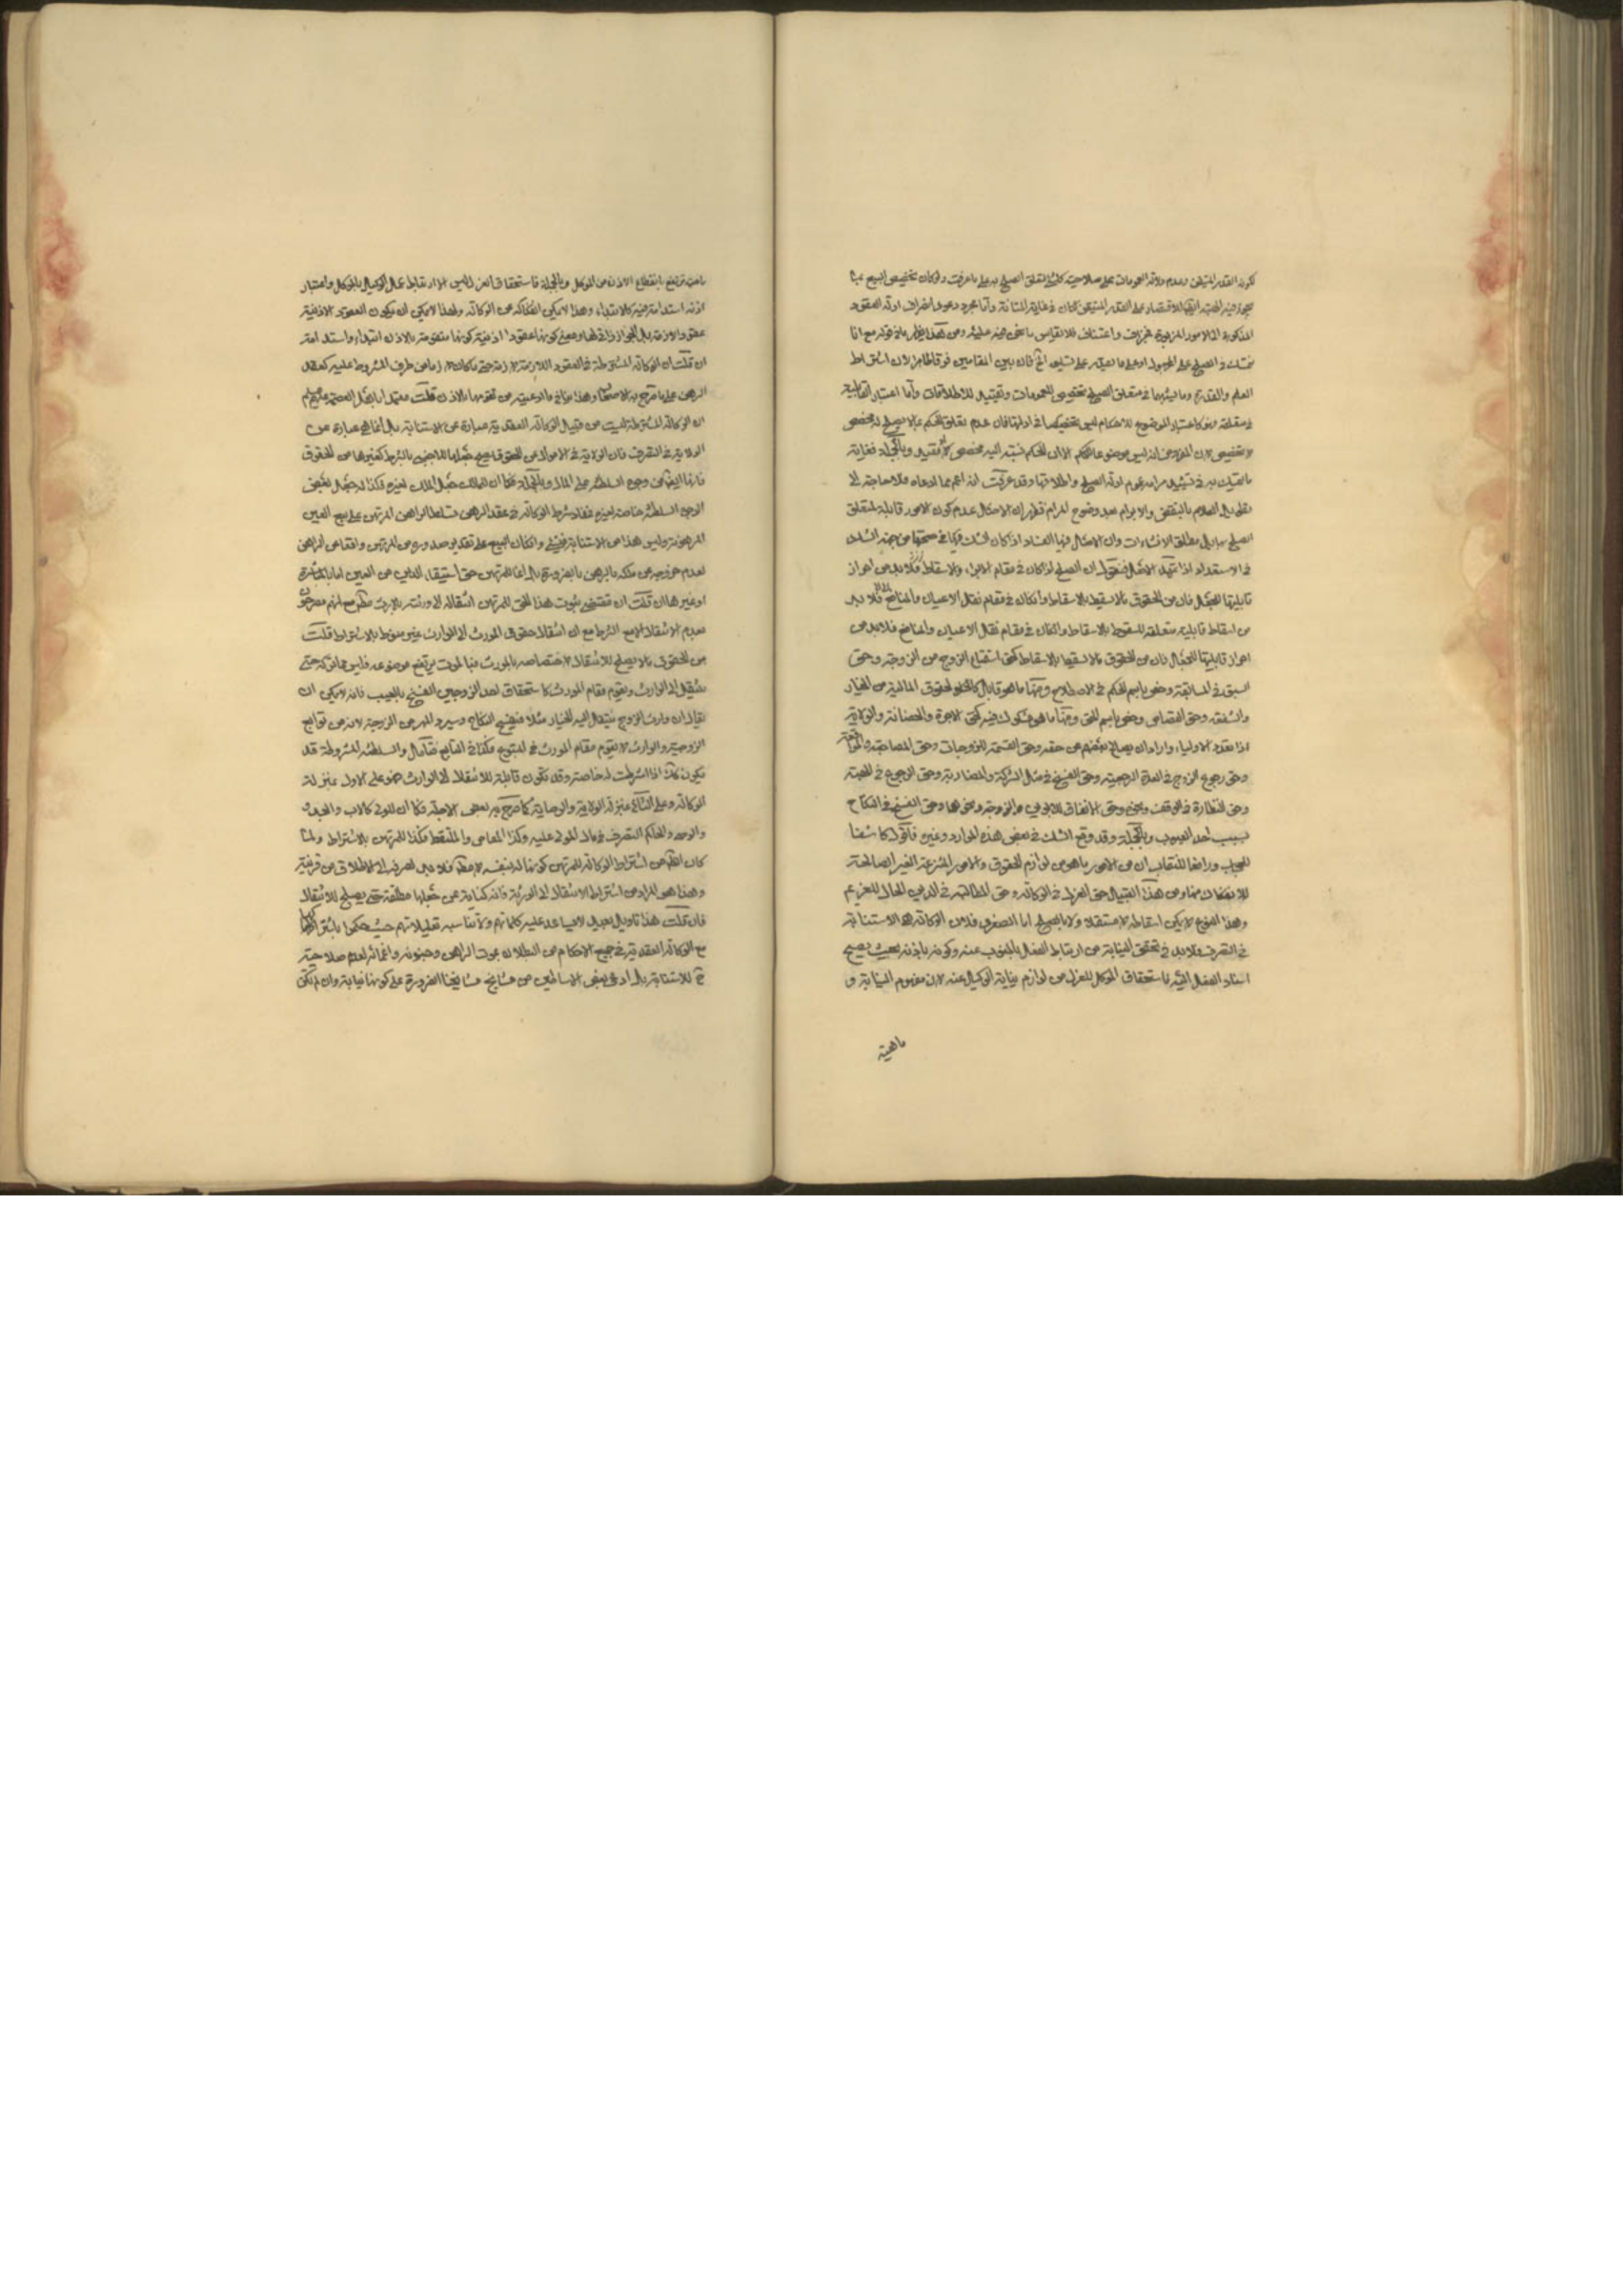 لكونه القدر المتيقن وعدم دلالة العمومات على صلاحية كل شئ لتعلق الصلح به على ما عرفت ولو كان تخصيص البيع بما
المذكورة الى الامور المزبورة فجزاف واعتساف فلا تقاس ما نحن فيه عليه ومن هذا ظهر ما في قوله مع انا
العلم والقدرة وما اشبههما في متعلق الصلح تخصيص للعمومات وتقييد للاطلاقات واما اعتبار القابلية
في متعلقه فهو كاعتبار الموضوع للاحكام ليس تخصيصا في ادلتها فان عدم تعلق الحكم بما لا يصلح له تخصص
لا تخصيص لان الخروج
ما يتمسك به في تشييد مرامه عموم ادلة الصلح واطلاقها وقد عرفت انه اعم مما ادعاه فلا حاجة الى
تطويل الكلام بالنقض والابرام بعد وضوح المرام فظهر ان الاصل عدم كون الامور قابلة لتعلق
الصلح بها بل مطلق الانشاءات وان الاصل فيها الفساد اذا كان الشك في صحتها من جهة الشك
في الاستعداد اذا تمهد الاصل فنقول ان الصلح اذا كان في مقام الابراء والاسقاط فلا بد من احراز
قابليتها للجعل فان من الحقوق ما لا يسقط بالاسقاط وان كان في مقام نقل الاعيان والمنافع فلا بد
من اسقاط قابلية متعلقه للسقوط بالاسقاط وان كان في مقام نقل الاعيان والمنافع فلا بد من
احراز قابليتها للجعل فان من الحقوق ما لا يسقط بالاسقاط كحق استمتاع الزوج من الزوجة وحق
السبق في المسابقة وخص باسم الحكم في الاصطلاح ومنها ما هو قابل كالحقوق المالية من الخيار
والشفعة وحق القصاص وخص باسم الحق ومنها ما هو مشكوك فيه كحق الاجرة والحضانة والولاية
اذا تعدد الاولياء وارادان يصالح بعضهم عن حقه وحق القسمة للزوجات وحق المصاحبة
وحق رجوع الزوج في العدة الرجعية وحق الفسخ في مثل الشركة والمضاربة وحق الرجوع في الهبة
وحق النظارة في الوقف ونحوه وحق الانفاق للابوين والزوجة ونحوها وحق الفسخ في النكاح
بسبب احد العيوب وبالجملة وقد وقع الشك في بعض هذه الموارد وغيره فاقول كاشفا
للحجاب ورافعا للنقاب ان من الامور ما هو من لوازم الحقوق والامور المنتزعة الغير الصالحة
للانفكاك عنها ومن هذا القبيل حق العزل في الوكالة وحق المطالبة في الدين الحال للغريم
وهذا النوع لا يمكن اسقاطه لا مستقلا ولا بالصلح اما الصغرى فلان الوكالة هو الاستنابة
في التصرف ولا بد في تحقق النيابة من ارتباط الفعل بالمنوب عنه وكونه باذنه بحيث يصح
اسناد الفعل اليه فاستحقاق الموكل للعزل من لوازم نيابة الوكيل عنه لان مفهوم النيابة و
ماهيته
ماهيته ترتفع بانقطاع الاذن من الموكل وبالجملة فاستحقاق العزل ليس الا ارتباط عمل الوكيل بالموكل واعتبار
اذنه استدامة فيه كالابتداء وهذا لا يمكن انفكاكه عن الوكالة ولهذا لا يمكن ان يكون العقود الاذنية
عقودا لازمة بل الجواز ذاتي لها ومعنى كونها عقودا اذنية كونها متقومة بالاذن ابتداء واستدامة
ان قلت ان الوكالة المشترطة في العقود اللازمة لازمة حتى ما كان لازما من طرف المشروط عليه كعقد
الرهن على ما صرح به الاصحاب وهذا ينافي ما ادعيته من تقومها بالاذن قلت
ان الوكالة المشترطة ليست من قبيل الوكالة العقدية عبارة عن الاستنابة بل انما هي عبارة عن
الولاية في التصرف فان الولاية في الاموال من الحقوق فيصح جعلها للاجنبي بالشرط كغيرها من الحقوق
فانها ايضا من وجوه السلطنة على المال وبالجملة فكما ان للمالك جعل الملك لغيره فكذا له جعل بعض
الوجوه السلطنة خاصة لغيره فمفاد شرط الوكالة في عقد الرهن تسلط الراهن المرتهن على بيع العين
المرهونة وليس هذا من الاستنابة في شئ وان كان البيع على تقدير صدوره من المرتهن واقعا عن الراهن
لعدم خروجه عن ملكه بالرهن بالضرورة بل انما للمرتهن حق استيفاء الدين من العين اما بالمباشرة
او غيرها ان قلت ان مقتضى ثبوت هذا الحق للمرتهن انتقاله الى ورثته بالارث مطلقا مع انهم مصرحون
بعدم الانتقال الا مع الشرط مع ان انتقال حقوق المورث الى الوارث غير منوط بالاشتراط قلت
من الحقوق ما لا يصلح للانتقال لاختصاصه بالمورث فبالموت يرتفع موضوعه فليس مما تركه حتى
ينتقل الى الوارث ويقوم مقام المورث كاستحقاق احد الزوجين الفسخ بالعيب فانه لا يمكن ان
يقال ان وارث الزوج ينتقل اليه الخيار مثلا فيفسخ النكاح ويسترد المهر من الزوجة لانه من توابع
الزوجية والوارث لا يقوم مقام المورث في المتبوع فكذا في التابع فتأمل والسلطنة المشروطة قد
يكون كك اذا اشترطت له خاصة وقد تكون قابلة للانتقال الى الوارث فهو على الاول بمنزلة
الوكالة وعلى الثاني بمنزلة الولاية والوصاية كما صرح به بعض الاجلة فكما ان للولي كالاب والجد
والوصي والحاكم التصرف في مال المولى عليه وكذا المقاص والملتقط فكذا للمرتهن بالاشتراط ولما
كان الظاهر من اشتراط الوكالة للمرتهن كونها له بنفسه لا مطلقا فلا بد لصرفه الى الاطلاق من قرينة
وهذا هو المراد من اشتراط الانتقال الى الورثة فانه كناية عن جعلها مطلقة حتى يصلح للانتقال
فان قلت هذا تاويل بعيد لا يساعد عليه كلماتهم ولا يناسبه تعليلاتهم حيث حكموا باشتراكها
مع الوكالة العقدية في جميع الاحكام من البطلان بموت الراهن وجنونه واغمائه لعدم صلاحيته
ح للاستنابة بل ادعى بعض الاساطين من مشايخ مشايخنا الضرورة على كونها نيابة وان لم تكن